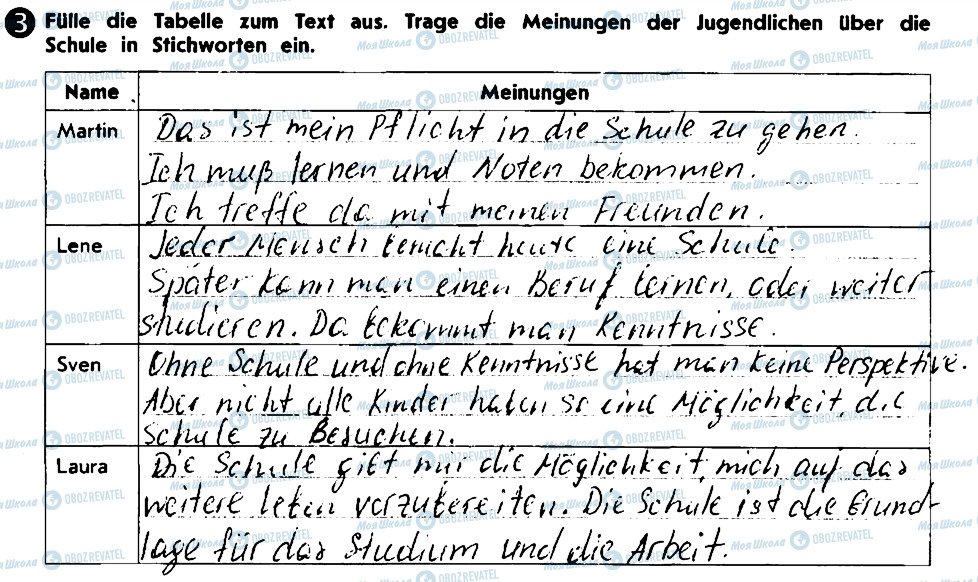 3 Fülle die Tabelle zum Text aus. Trage die Meinungen der Jugendlichen über die
Schule in Stichworten ein.
Name Meinungen
Martin Das ist mein Pflicht in die Schule zu gehen.
Ich muß lernen und Noten bekommen.
Ich treffe da mit meinen Freunden.
Lene Jeder Mensch besucht heute eine Schule.
Später kann man einen Beruf lernen, oder weiter
studieren. Da bekommt man Kenntnisse.
Sven Ohne Schule und ohne Kenntnisse hat man keine Perspektive.
Aber nicht alle Kinder haben so eine Möglichkeit, die
Schule zu Besuchen.
Laura Die Schule gibt mir die Möglichkeit, mich auf das
weitere leben vorzubereiten. Die Schule ist die Grund-
lage für das Studium und die Arbeit.
Моя Школа OBOZREVATEL